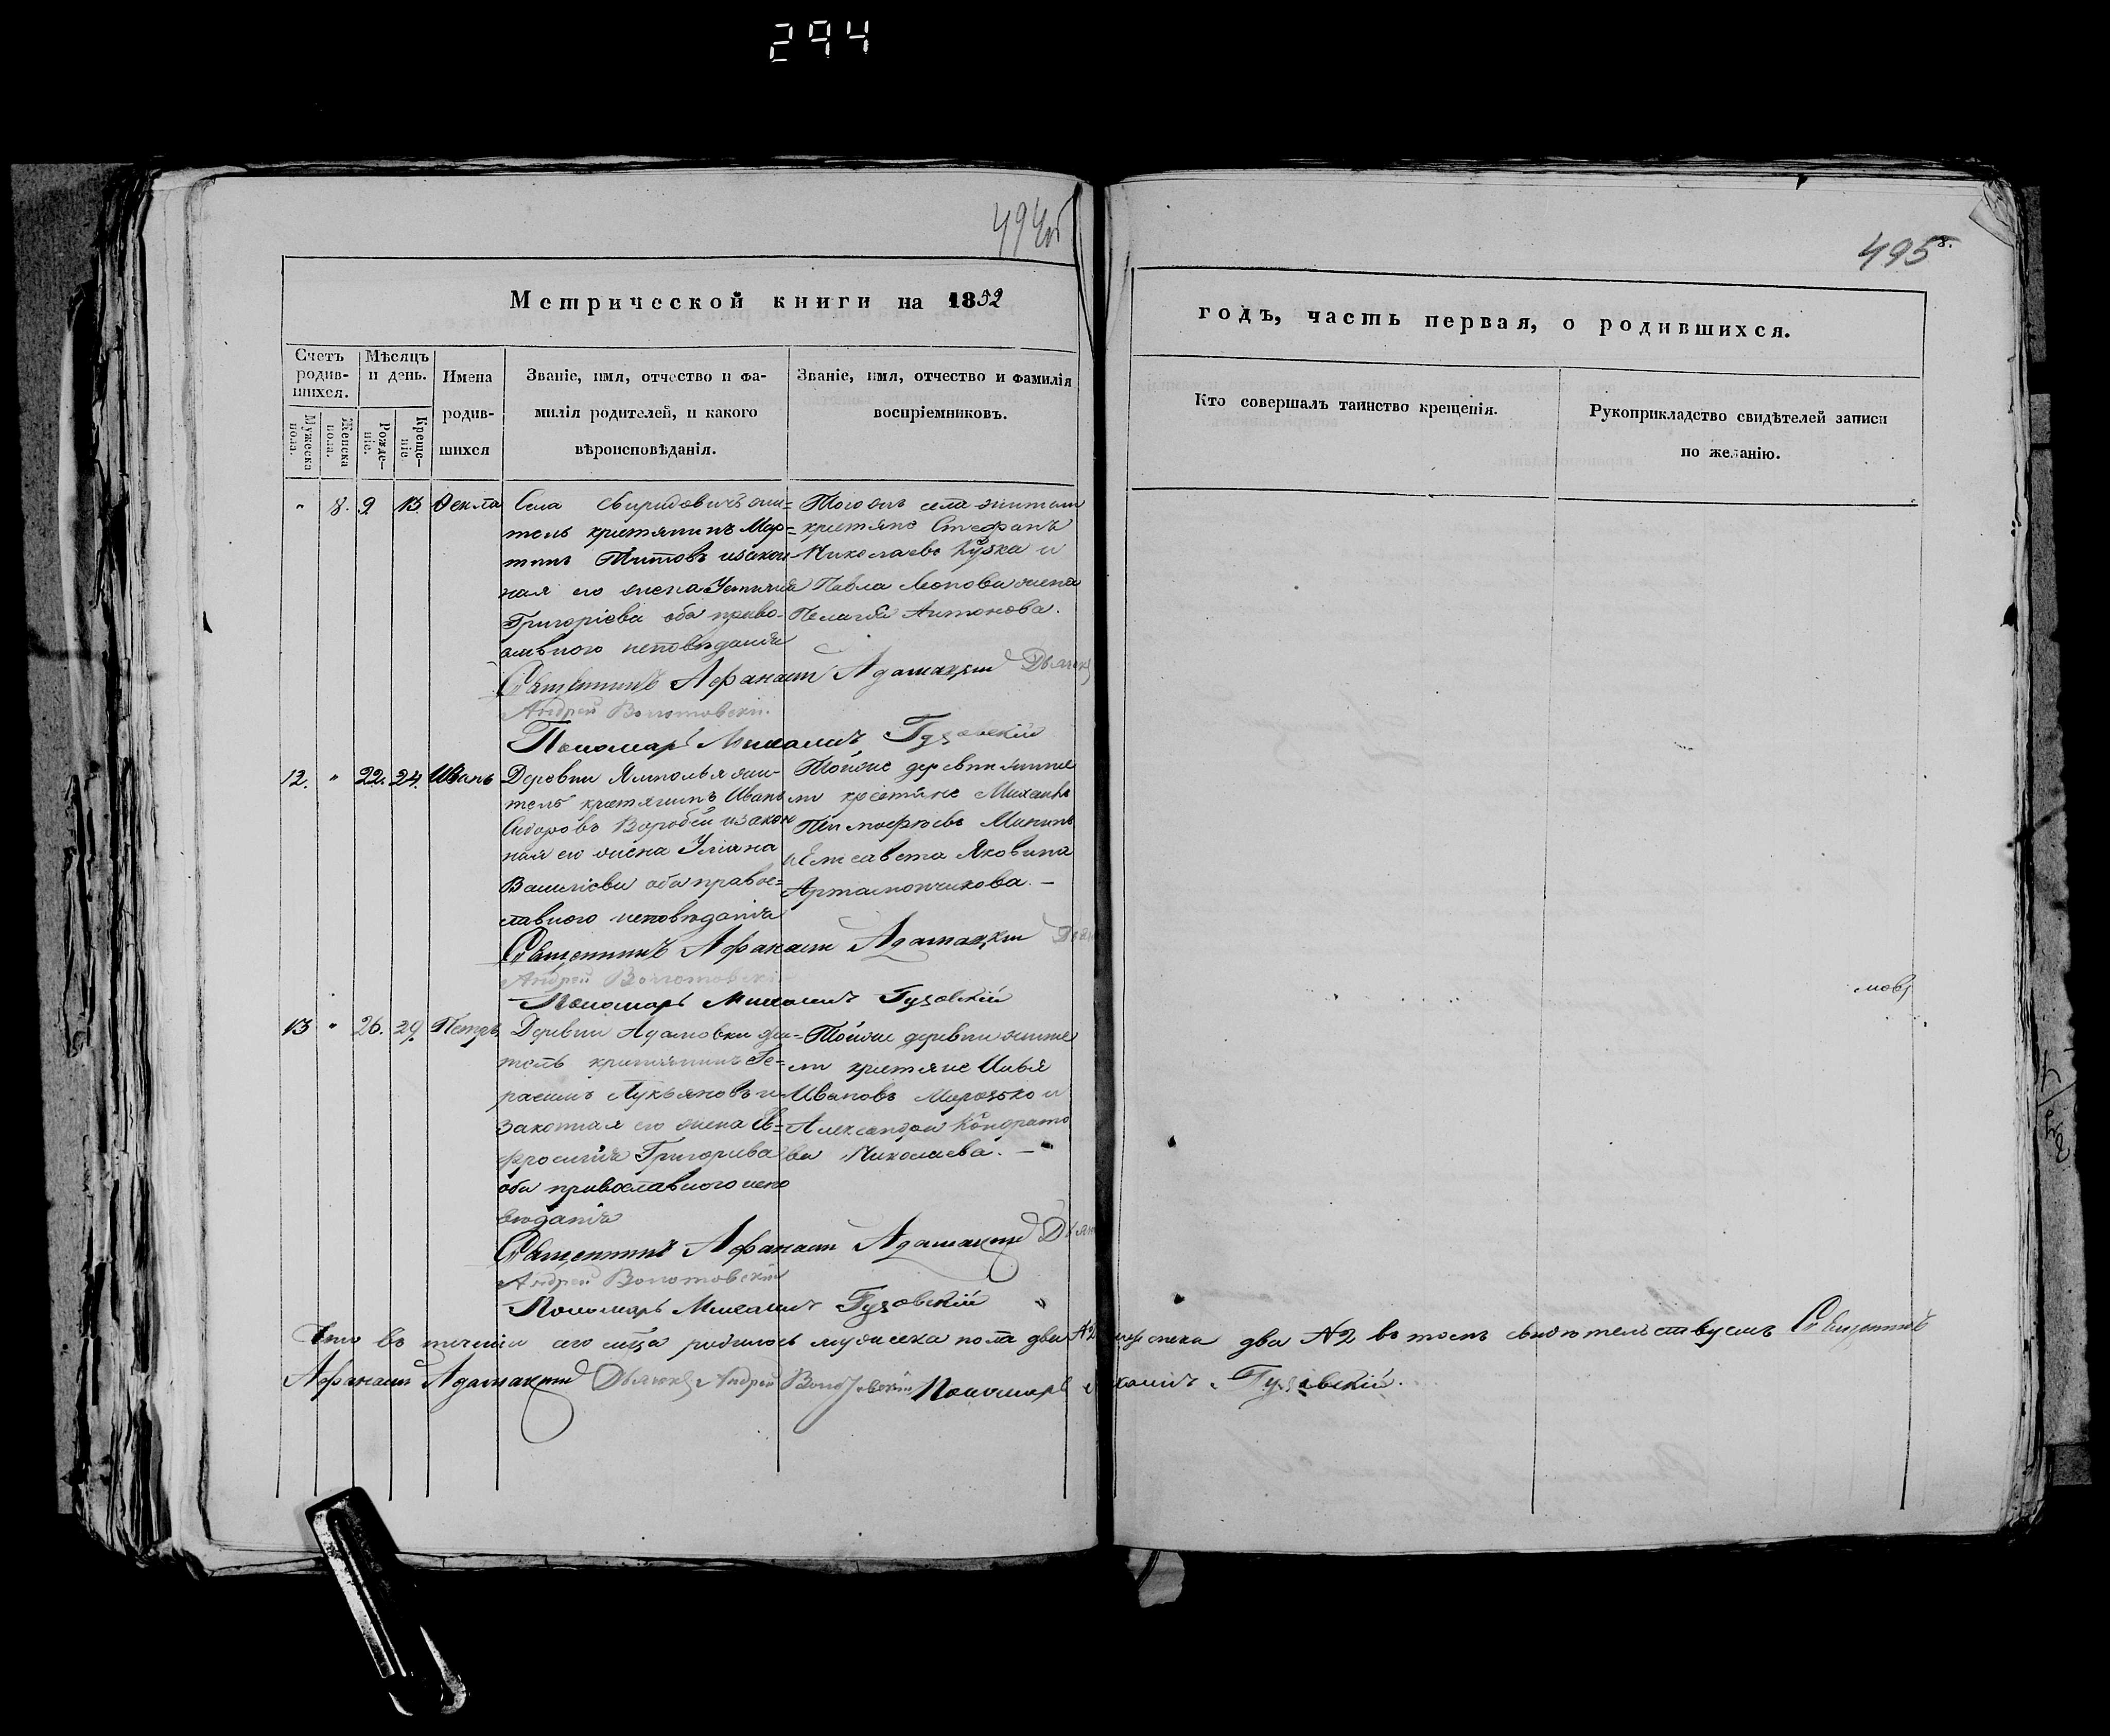 294
494об
495
8.
Метрической книги на 1852
годъ, часть первая, о родившихся.
Счетъ родив-шихся.
Мѣсяцъ и день.
Имена родив-шихся
Званіе, имя, отчество и фа-
милія родителей, и какого
вѣроисповѣданія.
Званіе, имя, отчество и фамилія
воспріемниковъ.
Кто совершалъ таинство крещенія.
Рукоприкладство свидѣтелей записи
по желанію.
Мужеска пола.
Женска пола.
Рожде-ніе.
Креще-ніе
" 8. 9 13 Ѳекла
Села Свиридовичъ жи=
тель крестянинъ Мар=
тинъ Титовъ изакон
ная его жена Устинія
Григоріева оба право-
славного исповѣданія
Тогожъ села жители
крестяне Стефанъ
Николаевъ Кузка и
Павла Леонова жена
Пелагія Антонова.
Священникъ Афанасій Адамацкій Дьячокъ
Андрей Волотовскій.
Пономарь Михаилъ Гузовскій
12. " 22. 24. Иванъ
Деревни Ямполья жи-
тель крестянинъ Иванъ
Сидоровъ Воробей изакон
ная его жена Уліана
Василіева оба право=
славного исповѣданія
Тойже деревни жите
ли крестяне Михаилъ
Тимофѣевъ Мининъ
иЕлисавета Яковина
Артамончикова. —
Священникъ Афанасій Адамацкій
Андрей Волотовскій
Пономарь Михаилъ Гузовскій
13 " 26. 29. Петръ
Деревни Адамовки жи=
тель крестянинъ Ге=
расимъ Лукьяновъ и
законная его жена Ев=
фросинія Григорьева
оба православного испо
вѣданія
Тойже деревни жите
ли крестяне Илья
Ивановъ Морозько и
Александра Кондрато
ва Николаева. —
Священникъ Афанасій Адамацкій
Андрей Волотовскій
Пономарь Михаилъ Гузовскій
Что въ теченіи сего мѣсяца родилось мужеска пола два №2 женска два №2 въ томъ свидѣтельствуемъ Священникъ
Афанасій Адамацкій Дьячокъ Андрей Волотовскій Пономарь Михаилъ Гузовскій.